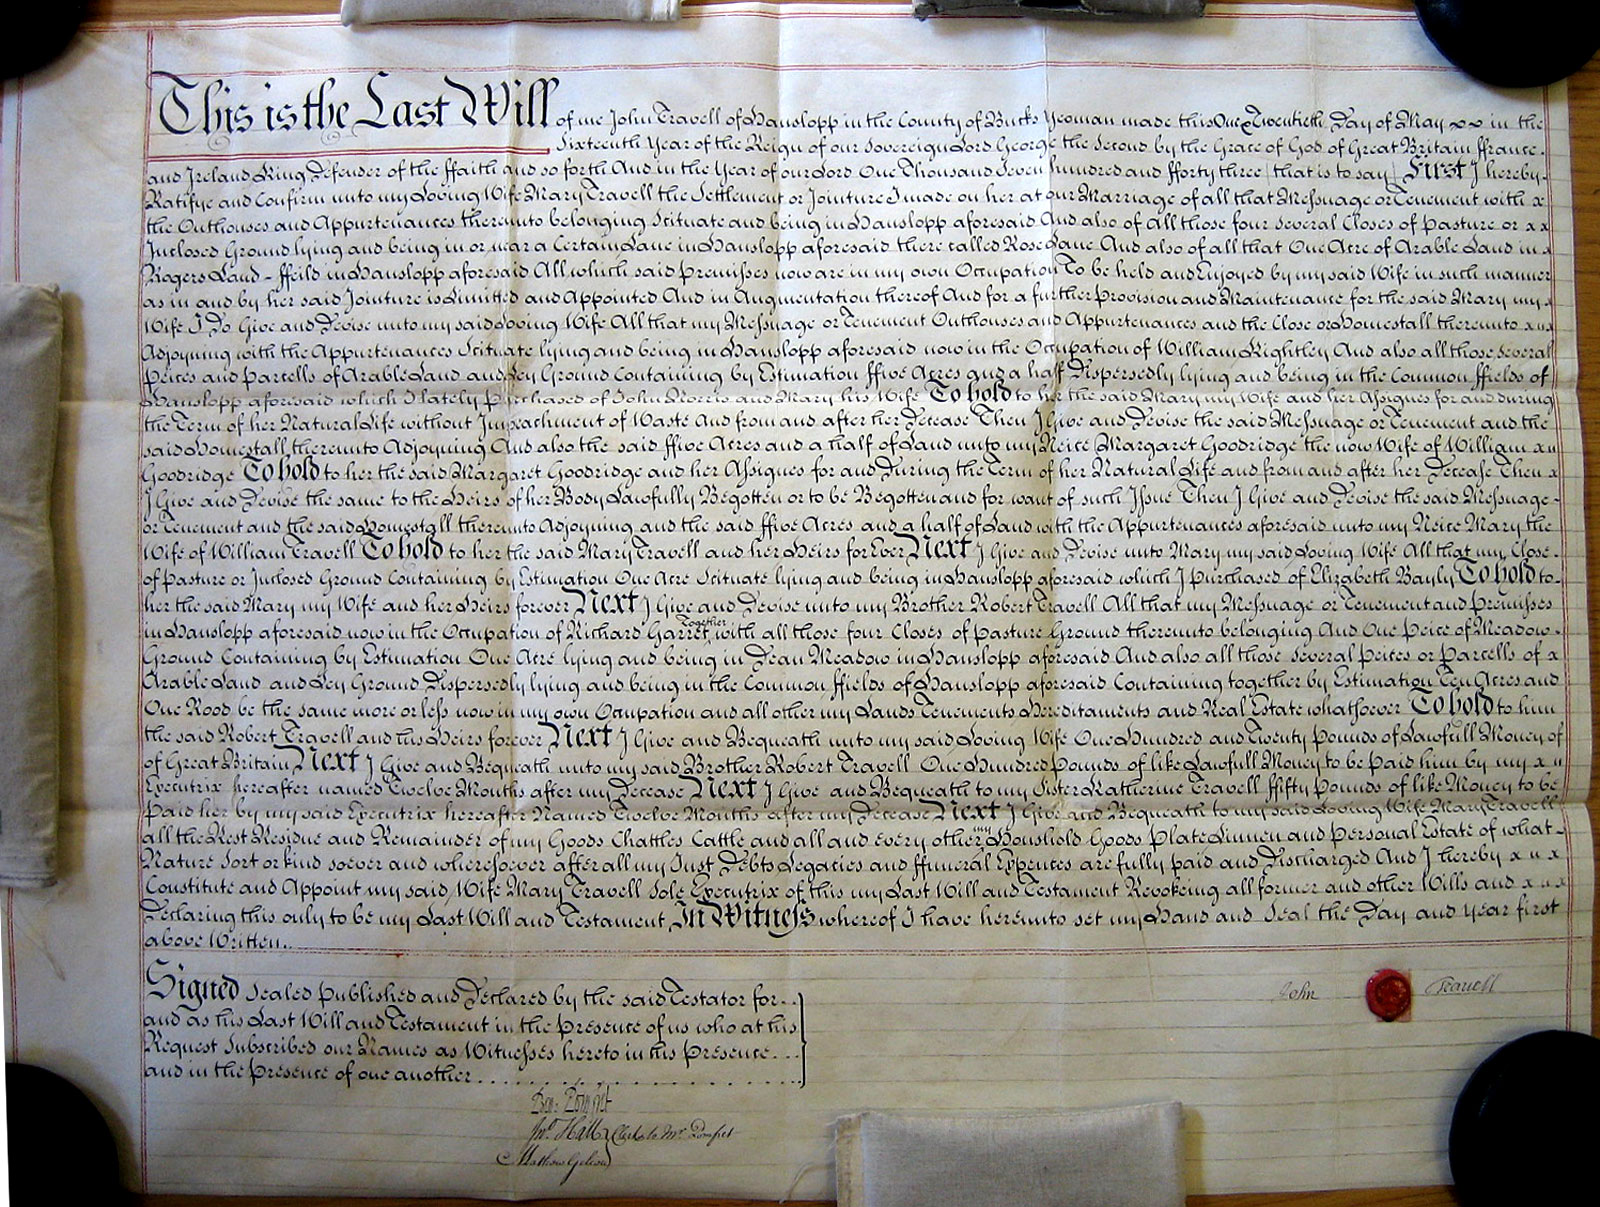 This is the Last Will of me John Travell of Hanslopp in the County of Bucks Yeoman made this One & Twentieth Day of May xx in the
Sixteenth Year of the Reign of our Sovereign Lord George the Second by the Grace of God of Great Britain ffrance
and Ireland King Defender of the ffaith and so forth And in the Year of our Lord One Thousand Seven hundred and fforty three (that is to say) First I hereby
Ratifye and Confirm unto my Loving Wife Mary Travell the Settlement or Jointure I made on her at our Marriage of all that Messuage or Tenement with x
the Outhouses and Appurtenances thereunto belonging Scituate and being in Hanslopp aforesaid And also of all those four several Closes of Pasture or x x
Inclosed Ground lying and being in or near a Certain Lane in Hanslopp aforesaid there called Rose Lane And also of all that One Acre of Arable Land in
Rogers Land-ffeild in Hanslopp aforesaid All which said Premisses now are in my own Occupation To be held and Enjoyed by my said Wife in such manner
as in and by her said Jointure is Limitted and Appointed And in Augmentation thereof And for a further Provision and Maintenance for the said Mary my
Wife I Do Give and Devise unto my said Loving Wife All that my Messuage or Tenement Outhouses and Appurtenances and the Close or Homestall thereunto x x x
Adjoyning with the Appurtenances Scituate lying and being in Hanslopp aforesaid now in the Occupation of William Rightley And also all those several
Peices and Parcells of Arable Land and Ley Ground Containing by Estimation ffive Acres and a half Dispersedly lying and being in the Common ffields of
Hanslopp aforesaid which I lately purchased of John Morris and Mary his Wife To hold to her the said Mary my Wife and her Assignes for and during
the Term of her Natural Life without Impeachment of Waste And from and after her Decease Then I Give and Devise the said Messuage or Tenement and the
said Homestall thereunto Adjoyning And also the said ffive Acres and a half of Land unto my Neice Margaret Goodridge the now Wife of William x x
Goodridge To hold to her the said Margaret Goodridge and her Assignes for and During the Term of her Natural Life and from and after her Decease Then x
I Give and Devise the same to the Heirs of her Body Lawfully Begotten or to be Begotten and for want of such Issue Then I Give and Devise the said Messuage
or Tenement and the said Homestall thereunto Adjoyning and the said ffive Acres and a half of Land with the Appurtenances aforesaid unto my Neice Mary the
Wife of William Travell To hold to her the said Mary Travell and her Heirs for Ever Next I Give and Devise unto Mary my said Loving Wife All that my Close
of Pasture or Inclosed Ground Containing by Estimation One Acre Scituate lying and being in Hanslopp aforesaid which I purchased of Elizabeth Bayly To hold to
her the said Mary my Wife and her Heirs forever Next I Give and Devise unto my Brother Robert Travell All that my Messuage or Tenement and Premisses
in Hanslopp aforesaid now in the Occupation of Richard Garret Together with all those four Closes of Pasture Ground thereunto belonging And One Peice of Meadow
Ground Containing by Estimation One Acre lying and being in Dean Meadow in Hanslopp aforesaid And also all those several Peices or Parcells of x
Arable Land and Ley Ground Dispersedly lying and being in the Common ffields of Hanslopp aforesaid Containing together by Estimation Ten Acres and
One Rood be the same more or less now in my own Occupation and all other my Lands Tenements Hereditaments and Real Estate whatsoever To hold to him
the said Robert Travell and his Heirs forever Next I Give and Bequeath unto my said Loving Wife One Hundred and Twenty Pounds of Lawfull Money of
of Great Britain Next I Give and Bequeath unto my said Brother Robert Travell One Hundred Pounds of like Lawfull Money to be paid him by my x
Executrix hereafter named Twelve Months after my Decease Next I Give and Bequeath to my Sister Katherine Travell ffifty Pounds of like Money to be
Paid her by my said Executrix hereafter Named Twelve Months after my Decease Next I Give and Bequeath to my said Loving Wife Mary Travell
all the Rest Residue and Remainder of my Goods Chattles Cattle and all and every other my Houshold Goods Plate Linnen and Personal Estate of what
Nature Sort or kind soever and wheresoever after all my Just Debts Legacies and ffuneral Expences are fully paid and Discharged And I hereby x x x
Constitute and Appoint my said Wife Mary Travell Sole Executrix of this my Last Will and Testament Revokeing all former and other Wills and x x x
Declaring this only to be my Last Will and Testament In Witness whereof I have hereunto set my Hand and Seal the Day and Year first
above Written..
Signed Sealed Published and Declared by the said Testator for..
and as his Last Will and Testament in the Presence of us who at his
Request Subscribed our Names as Witnesses hereto in his Presence...
and in the Presence of one another
John Travell
Ben: Pomfret
Jno. Hall Clerk to Mr. Pomfret
Mathew